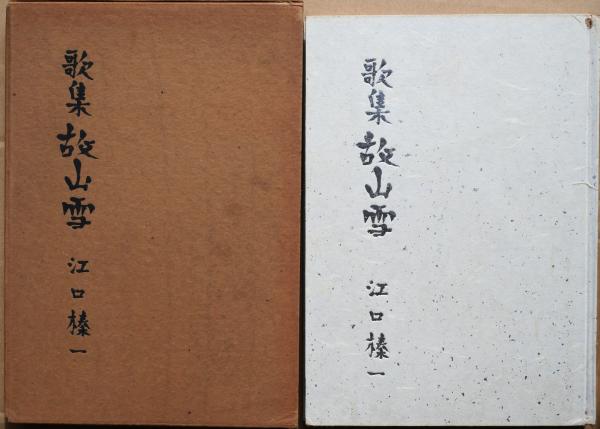 歌集 故山雪 江口榛一
歌集 故山雪 江口榛一